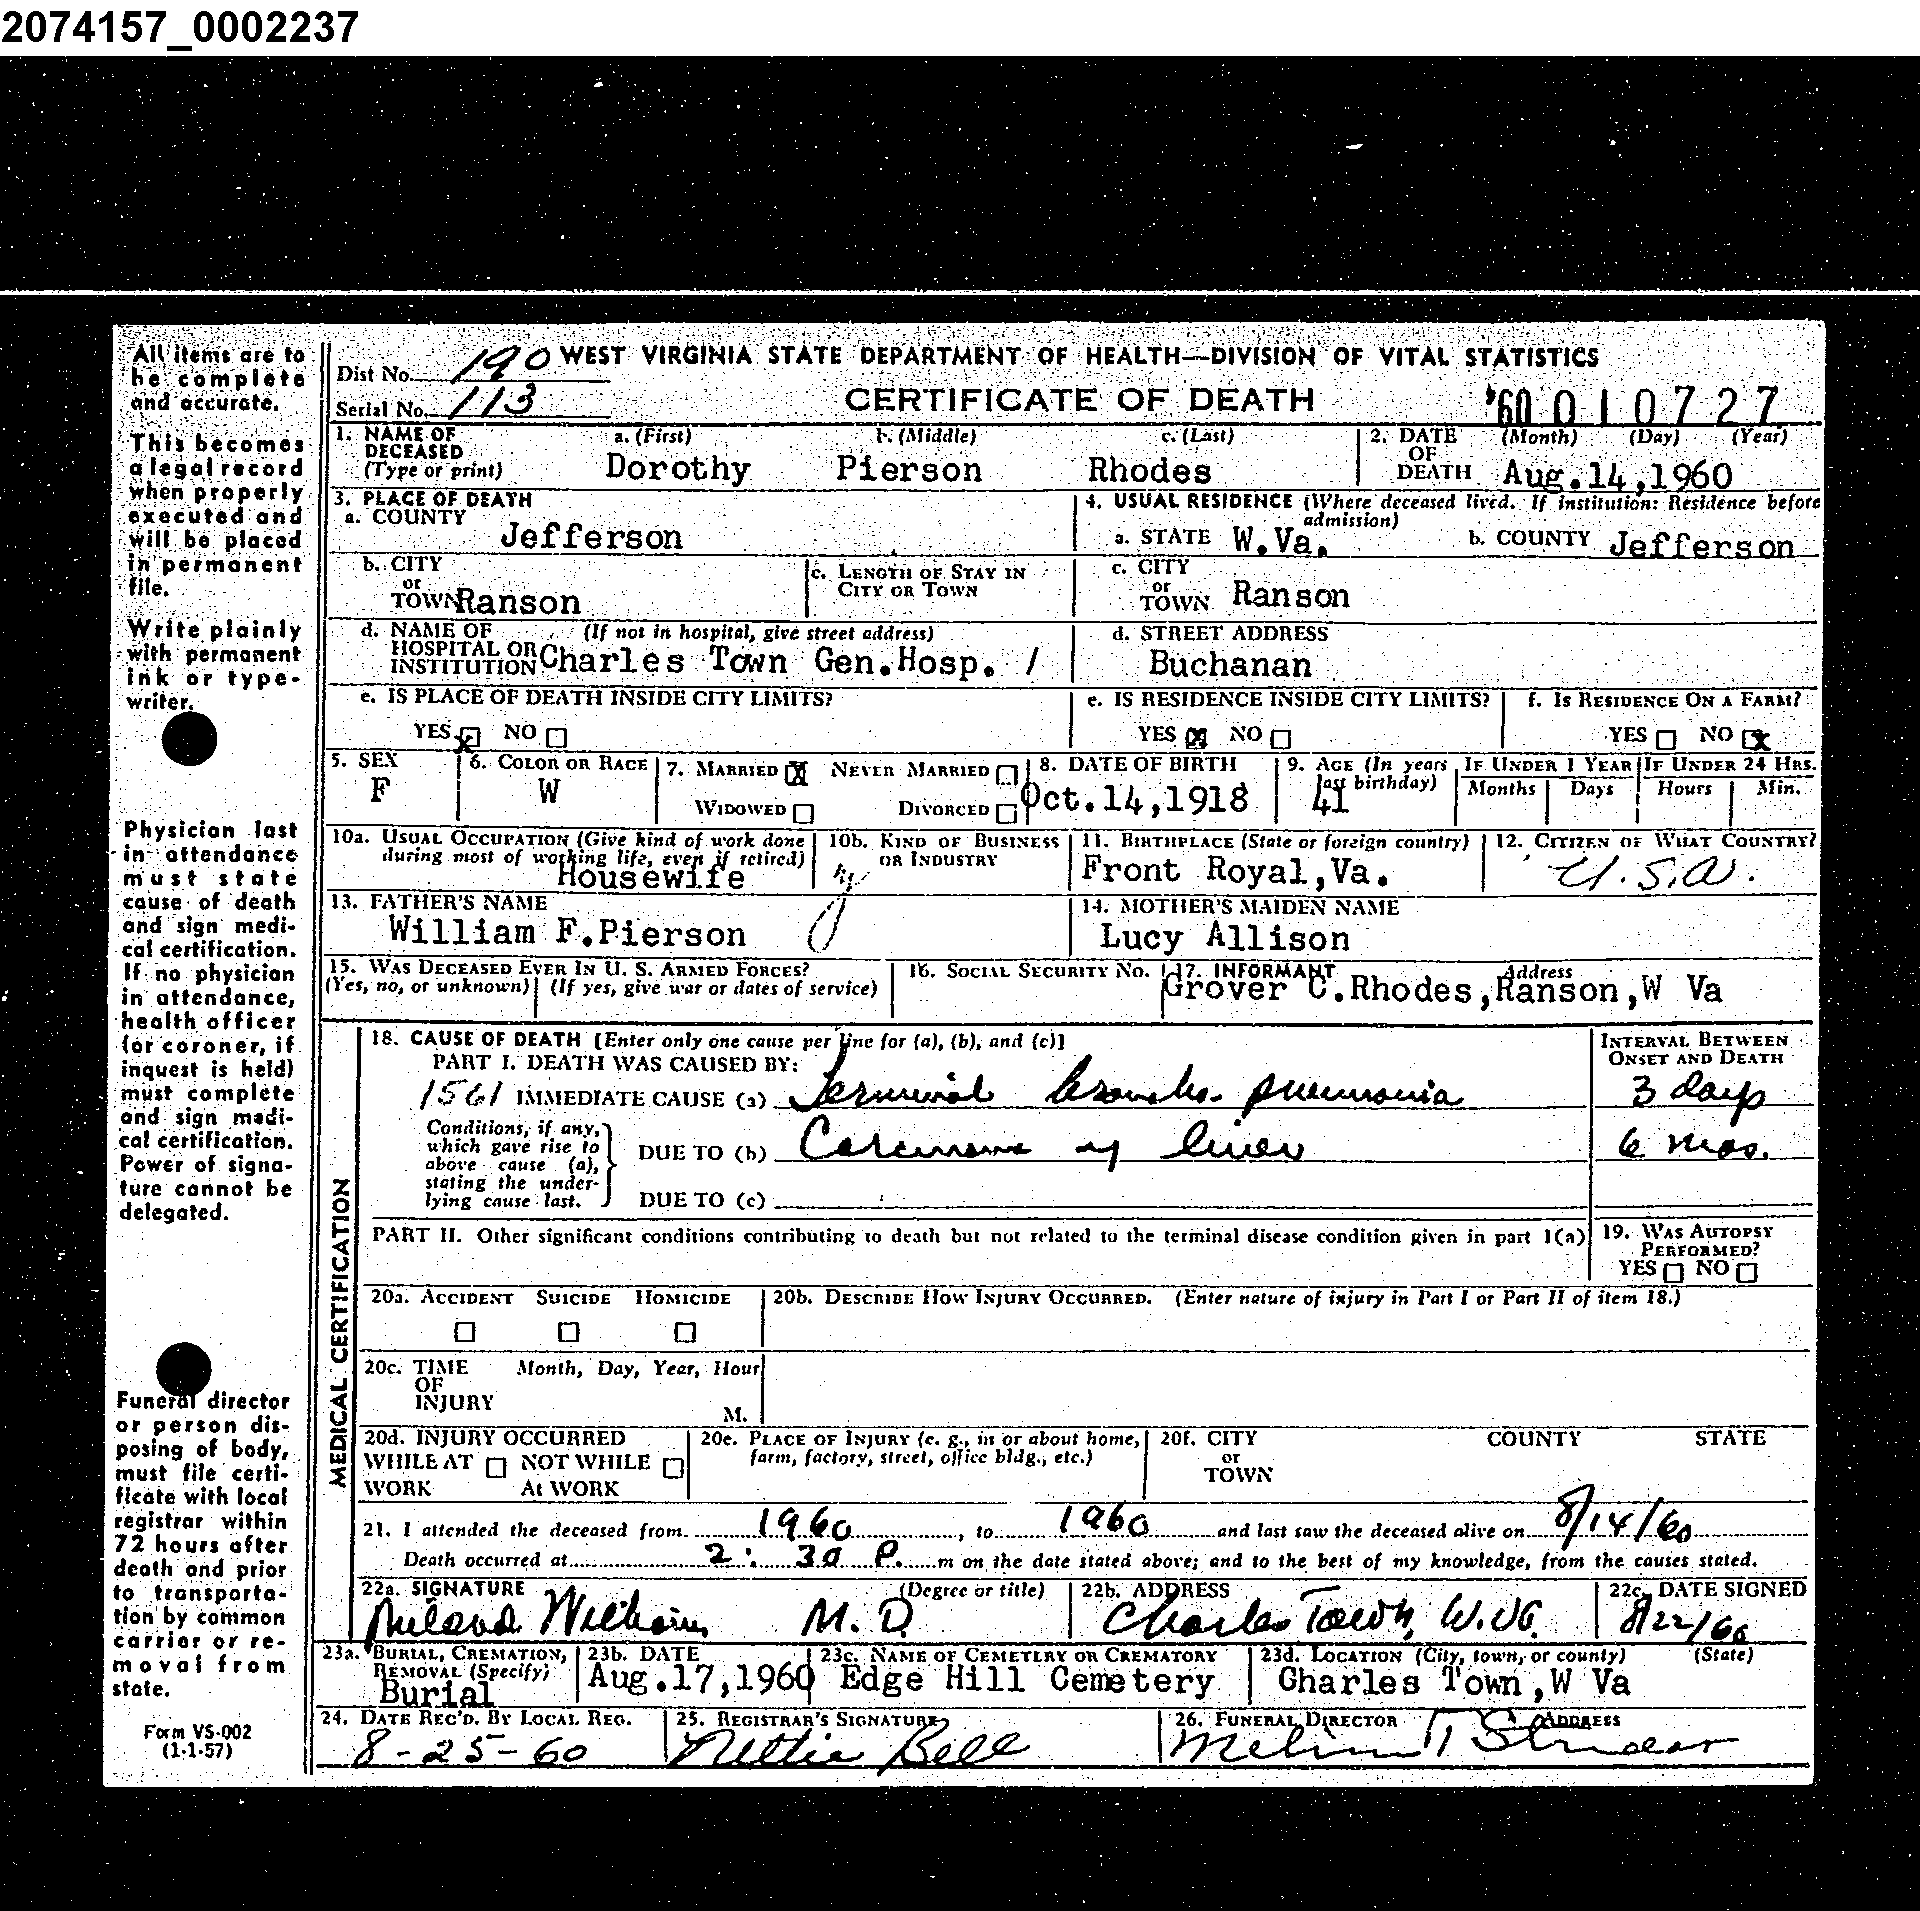 2074157_0002237
All items are to
be complete
and accurate.
This becomes
a legal record
when properly
executed and
will be placed
in permanent
file.
Write plainly
with permanent
ink or type-
writer.
Physician last
in attendance
must state
cause of death
and sign medi-
cal certification.
If no physician
in attendance,
health officer
(or coroner, if
inquest is held)
must complete
and sign medi-
cal certification.
Power of signa-
ture cannot be
delegated.
Funeral director
or person dis-
posing of body,
must file certi-
ficate with local
registrar within
72 hours after
death and prior
to transporta-
tion by common
carrier or re-
moval from
state.
Form VS-002
(1-1-57)
Dist No. 190 WEST VIRGINIA STATE DEPARTMENT OF HEALTH—DIVISION OF VITAL STATISTICS
Serial No. 113 CERTIFICATE OF DEATH '60 010727
1. NAME OF DECEASED (Type or print) a. (First) b. (Middle) c. (Last) 2. DATE OF DEATH (Month) (Day) (Year)
Dorothy Pierson Rhodes Aug.14,1960
3. PLACE OF DEATH 4. USUAL RESIDENCE (Where deceased lived. If institution: Residence before admission)
a. COUNTY Jefferson a. STATE W.Va. b. COUNTY Jefferson
b. CITY or TOWN Ranson c. LENGTH OF STAY IN CITY OR TOWN c. CITY or TOWN Ranson
d. NAME OF HOSPITAL OR INSTITUTION (If not in hospital, give street address) Charles Town Gen.Hosp. / d. STREET ADDRESS Buchanan
e. IS PLACE OF DEATH INSIDE CITY LIMITS? e. IS RESIDENCE INSIDE CITY LIMITS? f. IS RESIDENCE ON A FARM?
YES X NO YES X NO YES NO X
5. SEX F 6. COLOR OR RACE W 7. MARRIED X NEVER MARRIED WIDOWED DIVORCED 8. DATE OF BIRTH Oct.14,1918 9. AGE (In years last birthday) 41 IF UNDER 1 YEAR Months Days IF UNDER 24 HRS. Hours Min.
10a. USUAL OCCUPATION (Give kind of work done during most of working life, even if retired) Housewife 10b. KIND OF BUSINESS OR INDUSTRY 11. BIRTHPLACE (State or foreign country) Front Royal,Va. 12. CITIZEN OF WHAT COUNTRY? U.S.A.
13. FATHER'S NAME William F.Pierson 14. MOTHER'S MAIDEN NAME Lucy Allison
15. WAS DECEASED EVER IN U. S. ARMED FORCES? (Yes, no, or unknown) (If yes, give war or dates of service) 16. SOCIAL SECURITY NO. 17. INFORMANT Address Grover C.Rhodes,Ranson,W Va
MEDICAL CERTIFICATION
18. CAUSE OF DEATH [Enter only one cause per line for (a), (b), and (c)] INTERVAL BETWEEN ONSET AND DEATH
PART I. DEATH WAS CAUSED BY:
1561 IMMEDIATE CAUSE (a) Terminal broncho-pneumonia 3 days
Conditions, if any, which gave rise to above cause (a), stating the under-lying cause last.
DUE TO (b) Carcinoma of liver 6 mos.
DUE TO (c)
PART II. Other significant conditions contributing to death but not related to the terminal disease condition given in part 1(a) 19. WAS AUTOPSY PERFORMED? YES NO
20a. ACCIDENT SUICIDE HOMICIDE 20b. DESCRIBE HOW INJURY OCCURRED. (Enter nature of injury in Part I or Part II of item 18.)
20c. TIME OF INJURY Month, Day, Year, Hour M.
20d. INJURY OCCURRED WHILE AT WORK NOT WHILE At WORK 20e. PLACE OF INJURY (e. g., in or about home, farm, factory, street, office bldg., etc.) 20f. CITY or TOWN COUNTY STATE
21. I attended the deceased from 1960, to 1960 and last saw the deceased alive on 8/14/60
Death occurred at 2: 30 P. m on the date stated above; and to the best of my knowledge, from the causes stated.
22a. SIGNATURE (Degree or title) M.D. 22b. ADDRESS Charles Town, W.Va. 22c. DATE SIGNED 8/22/60
23a. BURIAL, CREMATION, REMOVAL (Specify) Burial 23b. DATE Aug.17,1960 23c. NAME OF CEMETERY OR CREMATORY Edge Hill Cemetery 23d. LOCATION (City, town, or county) (State) Charles Town,W Va
24. DATE REC'D. BY LOCAL REG. 8-25-60 25. REGISTRAR'S SIGNATURE Nettie Bell 26. FUNERAL DIRECTOR ADDRESS Strider